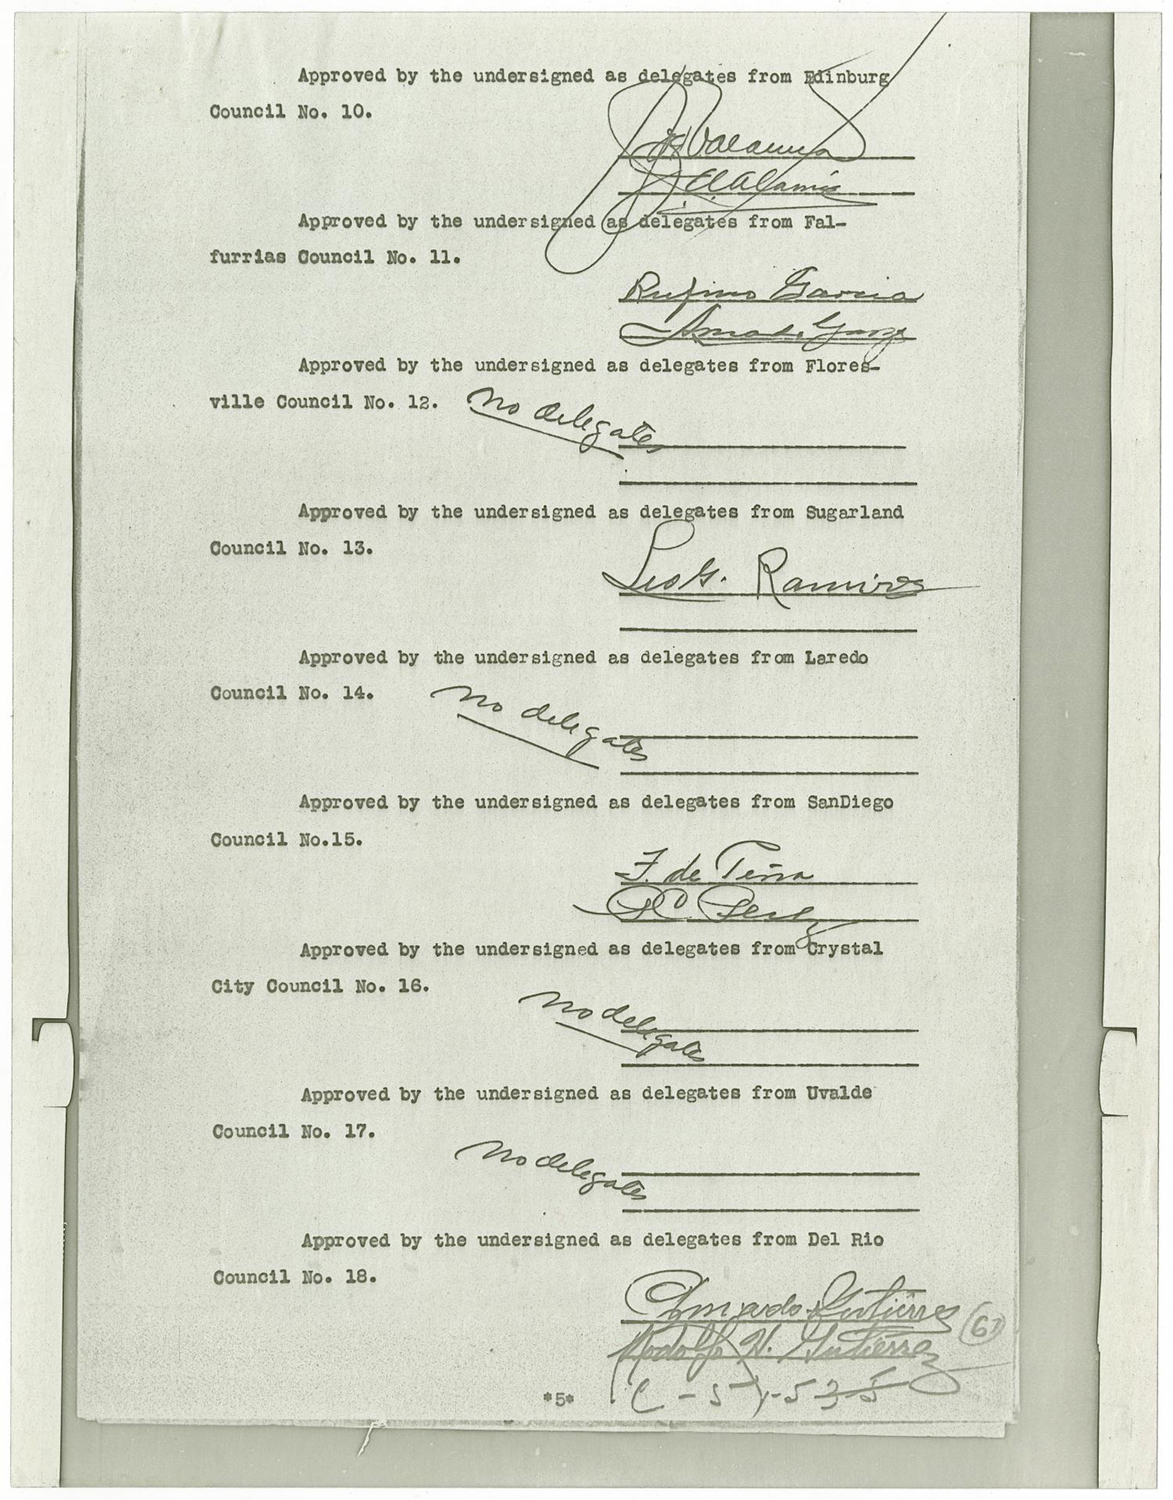 Approved by the undersigned as delegates from Edinburg
Council No. 10.
Approved by the undersigned as delegates from Fal-
furrias Council No. 11.
Rufino Garcia
Amado Garza
Approved by the undersigned as delegates from Flores-
ville Council No. 12.
no delegates
Approved by the undersigned as delegates from Sugarland
Council No. 13.
Leo G. Ramirez
Approved by the undersigned as delegates from Laredo
Council No. 14.
no delegates
Approved by the undersigned as delegates from SanDiego
Council No.15.
F. de Peña
Approved by the undersigned as delegates from Crystal
City Council No. 16.
no delegates
Approved by the undersigned as delegates from Uvalde
Council No. 17.
no delegates
Approved by the undersigned as delegates from Del Rio
Council No. 18.
Gutierrez
Rodolfo H. Gutierrez
*5*